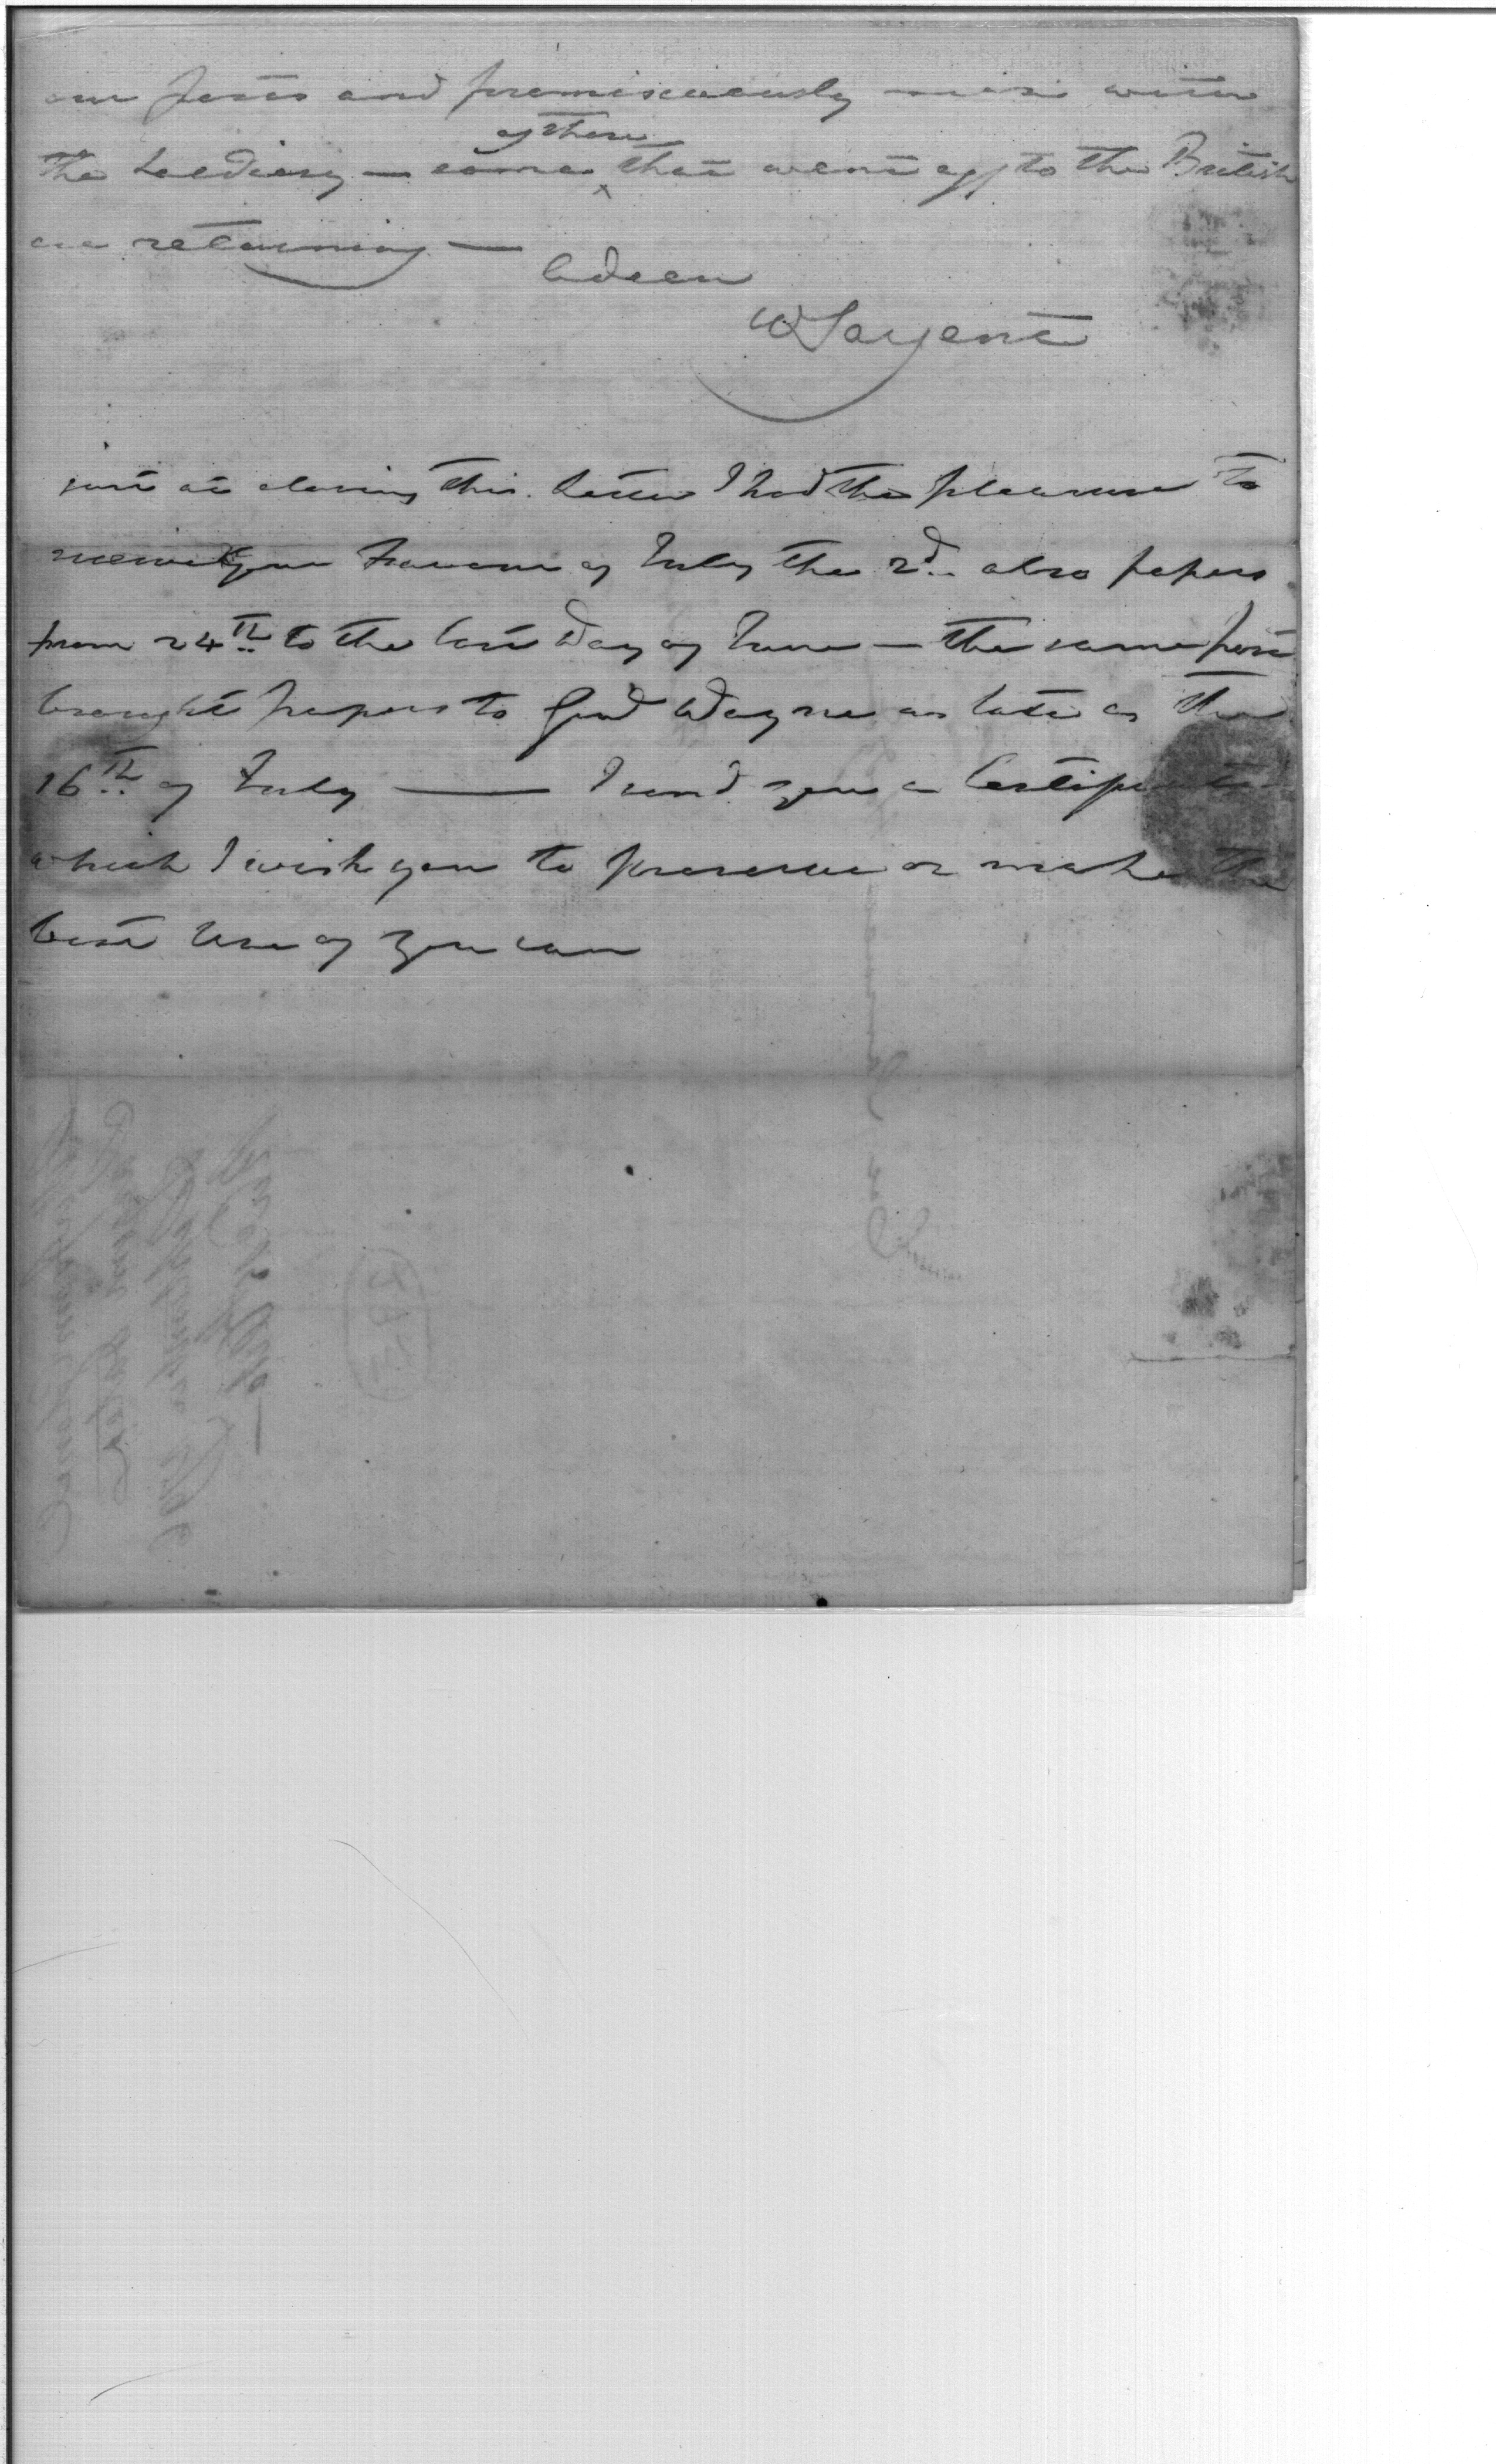 our posts and promiscuously mix with
the Soldiery — some of them that went off to the British
are returning —
Adieu
W Sargent
just at closing this Letter I had the pleasure to
receive your Favour of July the 2d.. also papers
from 24th to the last Day of June — the same post
brought papers to Genl Wayne as late as the
16th of July — I send you a Certificate
which I wish you to preserve or make the
best Use of you can